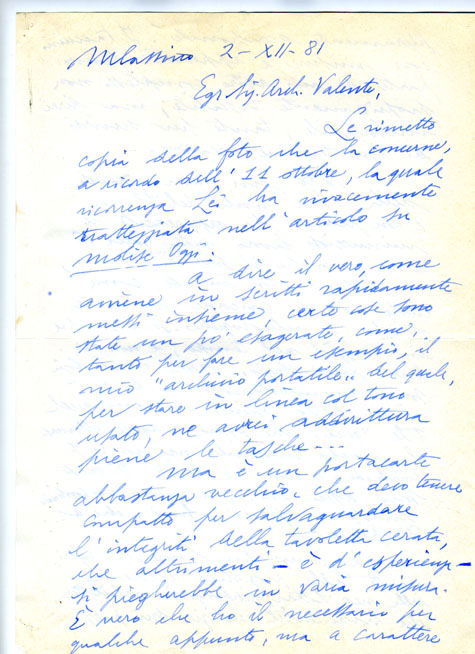 2-XII-81
Egr. Sig. Arch. Valente,
Le rimetto
copia della foto che la concerne,
a ricordo dell'11 ottobre, la quale
ricorrenza Lei ha vivacemente
tratteggiata nell'articolo su
Molise Oggi.
A dire il vero, come
avviene in scritti rapidamente
messi insieme, certe cose sono
state un po' esagerate, come,
tanto per fare un esempio, il
mio "archivio portatile" del quale,
per stare in linea col tono
usato, ne avrei addirittura
piene le tasche---
Ma è un portacarte
abbastanza vecchio, che devo tenere
compatto per salvaguardare
l'integrità della tavoletta cerata,
che altrimenti - è d'esperienza -
si piegherebbe in varia misura.
È vero che ho il necessario per
qualche appunto, ma a carattere